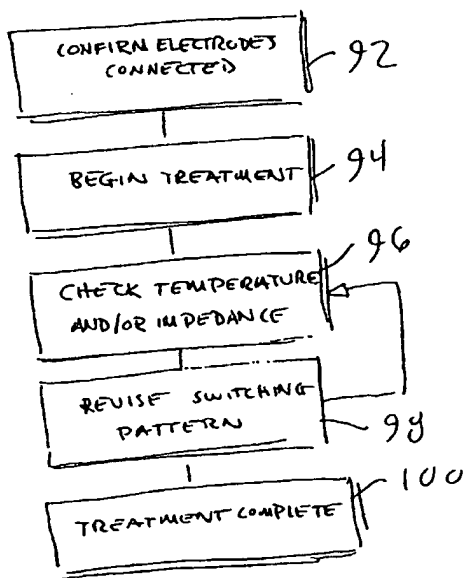 CONFIRM ELECTRODES
CONNECTED
92
BEGIN TREATMENT
94
96
CHECK TEMPERATURE
AND/OR IMPEDANCE
REVISE SWITCHING
PATTERN
98
100
TREATMENT COMPLETE